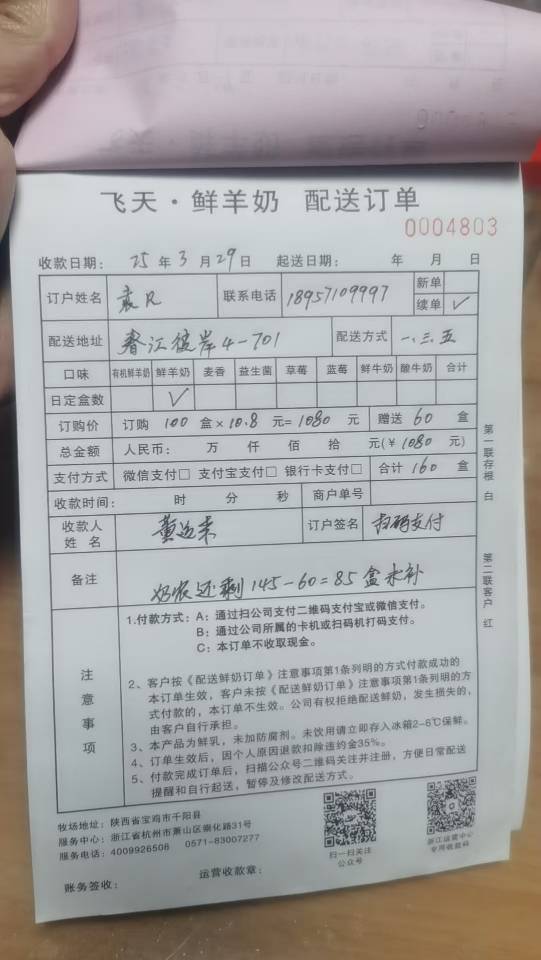 飞天·鲜羊奶 配送订单
0004803
收款日期： 25 年 3 月 29 日 起送日期： 年 月 日
订户姓名 袁凡 联系电话 18957109997 新单
续单 ✓
配送地址 春江彼岸4-701 配送方式 一.三.五
口味 有机鲜羊奶 鲜羊奶 麦香 益生菌 草莓 蓝莓 鲜牛奶 酸牛奶 合计
日定盒数 ✓
订购价 订购 100 盒×10.8 元=1080 元 赠送 60 盒
总金额 人民币： 万 仟 佰 拾 元(￥1080 元)
支付方式 微信支付□ 支付宝支付□ 银行卡支付□ 合计 160 盒
收款时间： 时 分 秒 商户单号
收款人
姓 名 订户签名 扫码支付
备注 还剩145-60=85盒未补
注意事项
1.付款方式：A：通过扫公司支付二维码支付宝或微信支付。
B：通过公司所属的卡机或扫码机打码支付。
C：本订单不收取现金。
2、客户按《配送鲜奶订单》注意事项第1条列明的方式付款成功的
本订单生效，客户未按《配送鲜奶订单》注意事项第1条列明的方
式付款的，本订单不生效。公司有权拒绝配送鲜奶，发生损失的，
由客户自行承担。
3、本产品为鲜乳，未加防腐剂。未饮用请立即存入冰箱2-6℃保鲜。
4、订单生效后，因个人原因退款扣除违约金35%。
5、付款完成订单后，扫描公众号二维码关注并注册，方便日常配送
提醒和自行起送，暂停及修改配送方式。
牧场地址：陕西省宝鸡市千阳县
服务中心：浙江省杭州市萧山区崇化路31号
服务电话：4009926508 0571-83007277
扫一扫关注
公众号
浙江运营中心
专用收款码
账务签收： 运营收款章：
第一联存根 白
第二联客户 红